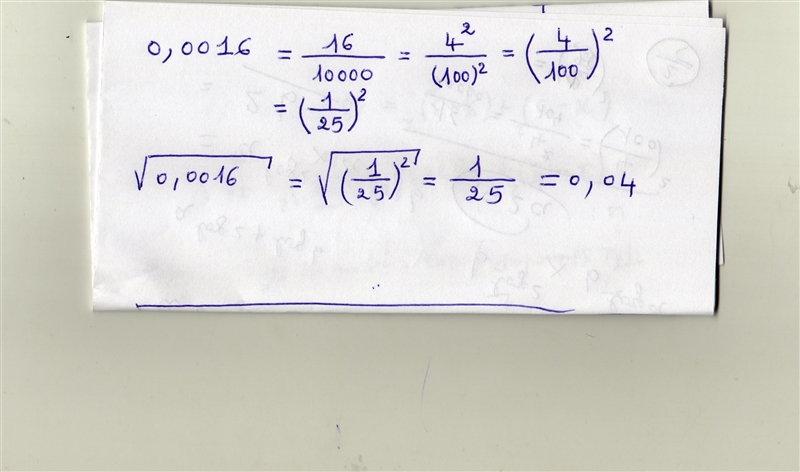 0,0016 = 16/10000 = 4²/(100)² = (4/100)²
= (1/25)²
√0,0016 = √(1/25)² = 1/25 = 0,04